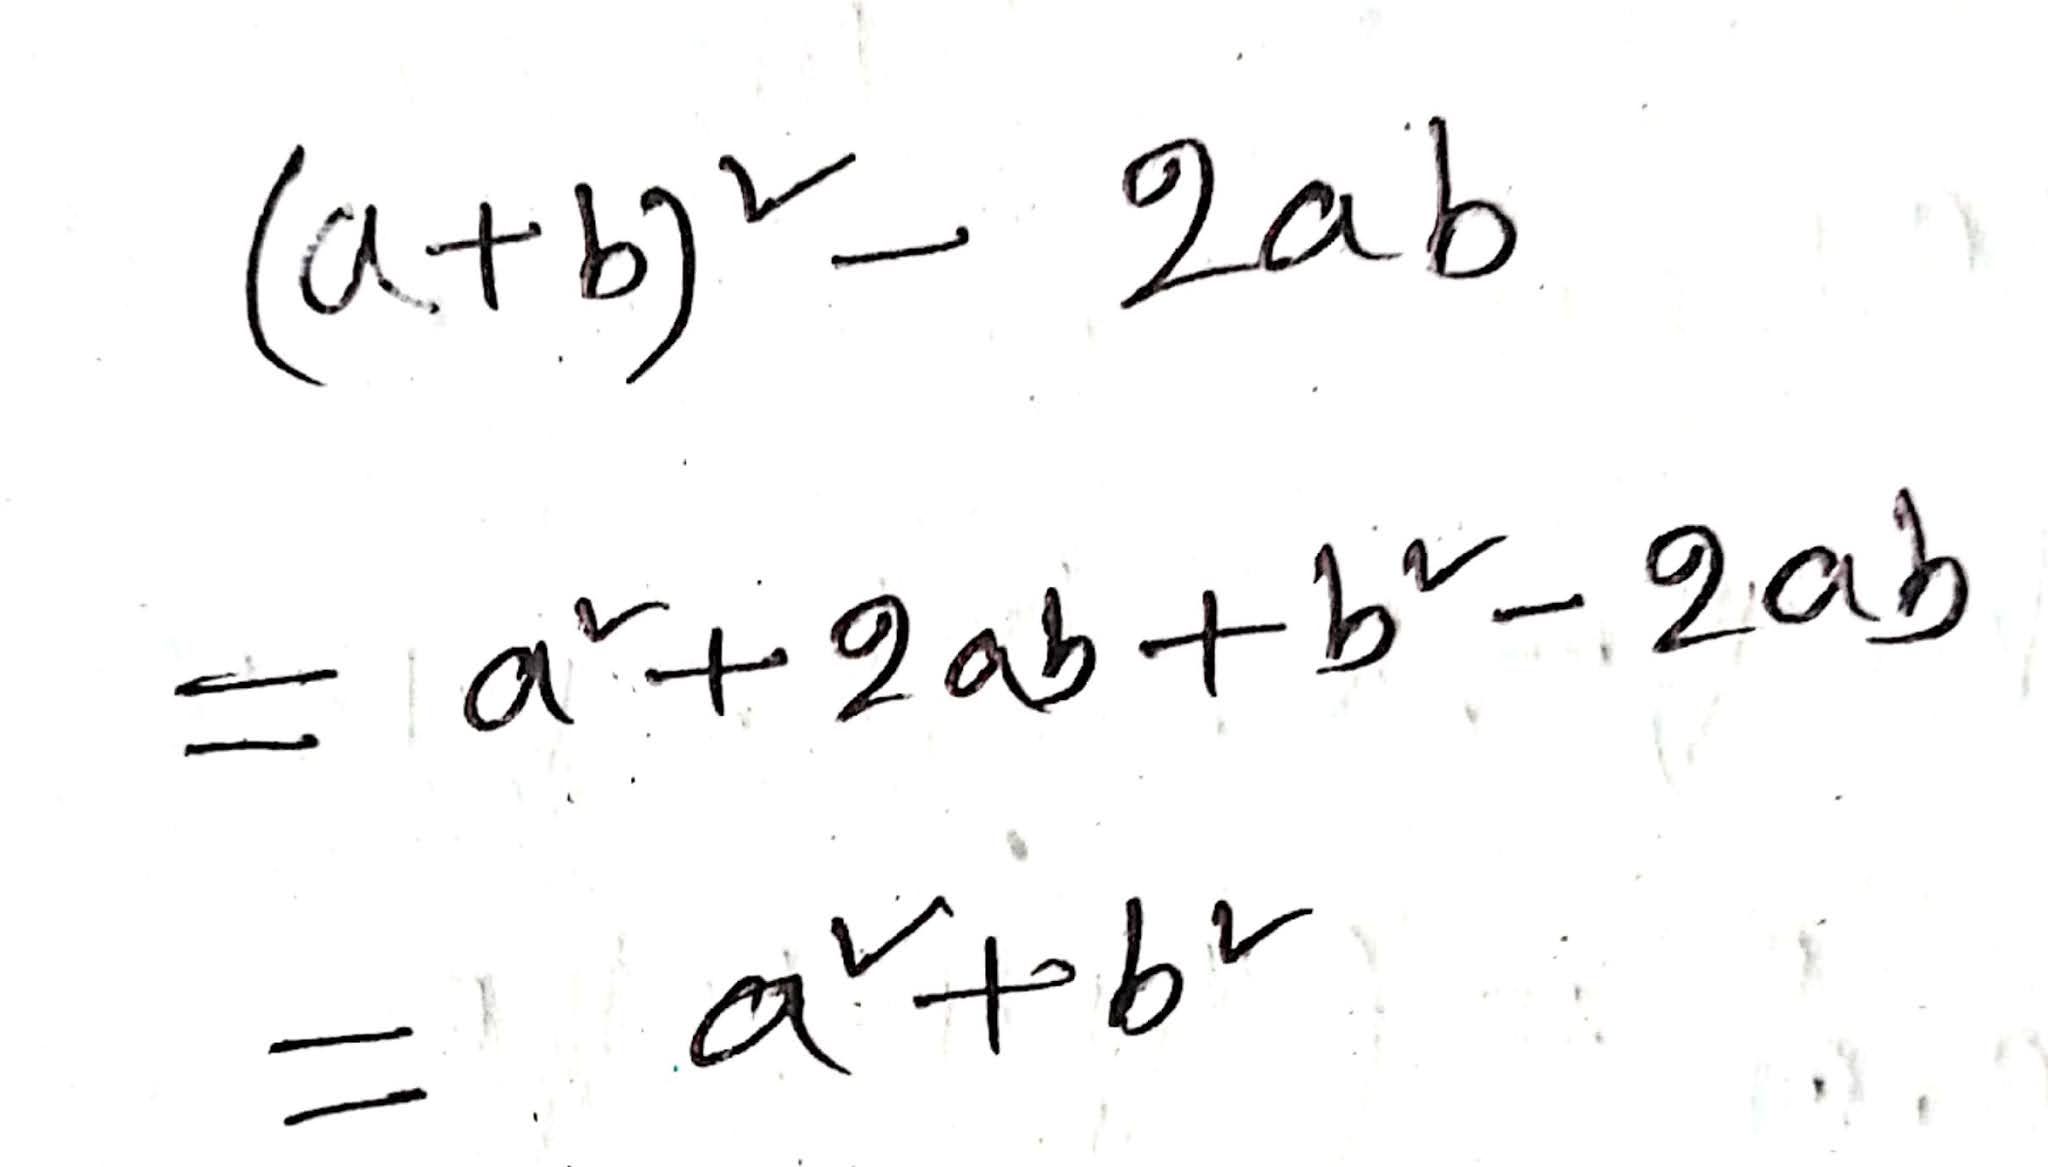 (a+b)² - 2ab
= a² + 2ab + b² - 2ab
= a² + b²